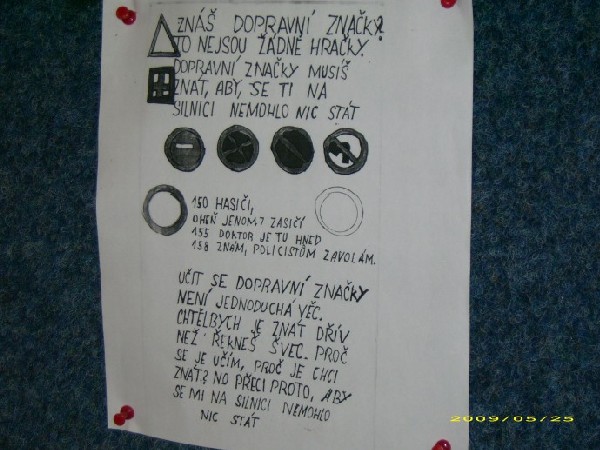 ZNÁŠ DOPRAVNÍ ZNAČKY?
TO NEJSOU ŽÁDNÉ HRAČKY.
DOPRAVNÍ ZNAČKY MUSÍŠ
ZNÁT, ABY, SE TI NA
SILNICI NEMOHLO NIC STÁT
150 HASIČI,
OHEŇ JENOM ZASIČÍ
155 DOKTOR JE TU HNED
158 ZNÁM, POLICISTŮM ZAVOLÁM.
UČIT SE DOPRAVNÍ ZNAČKY
NENÍ JEDNODUCHÁ VĚC.
CHTĚLBYCH JE ZNÁT DŘÍV
NEŽ ŘEKNEŠ ŠVEC. PROČ
SE JE UČÍM, PROČ JE CHCI
ZNÁT? NO PŘECI PROTO, ABY
SE MI NA SILNICI NEMOHLO
NIC STÁT
2009/05/25